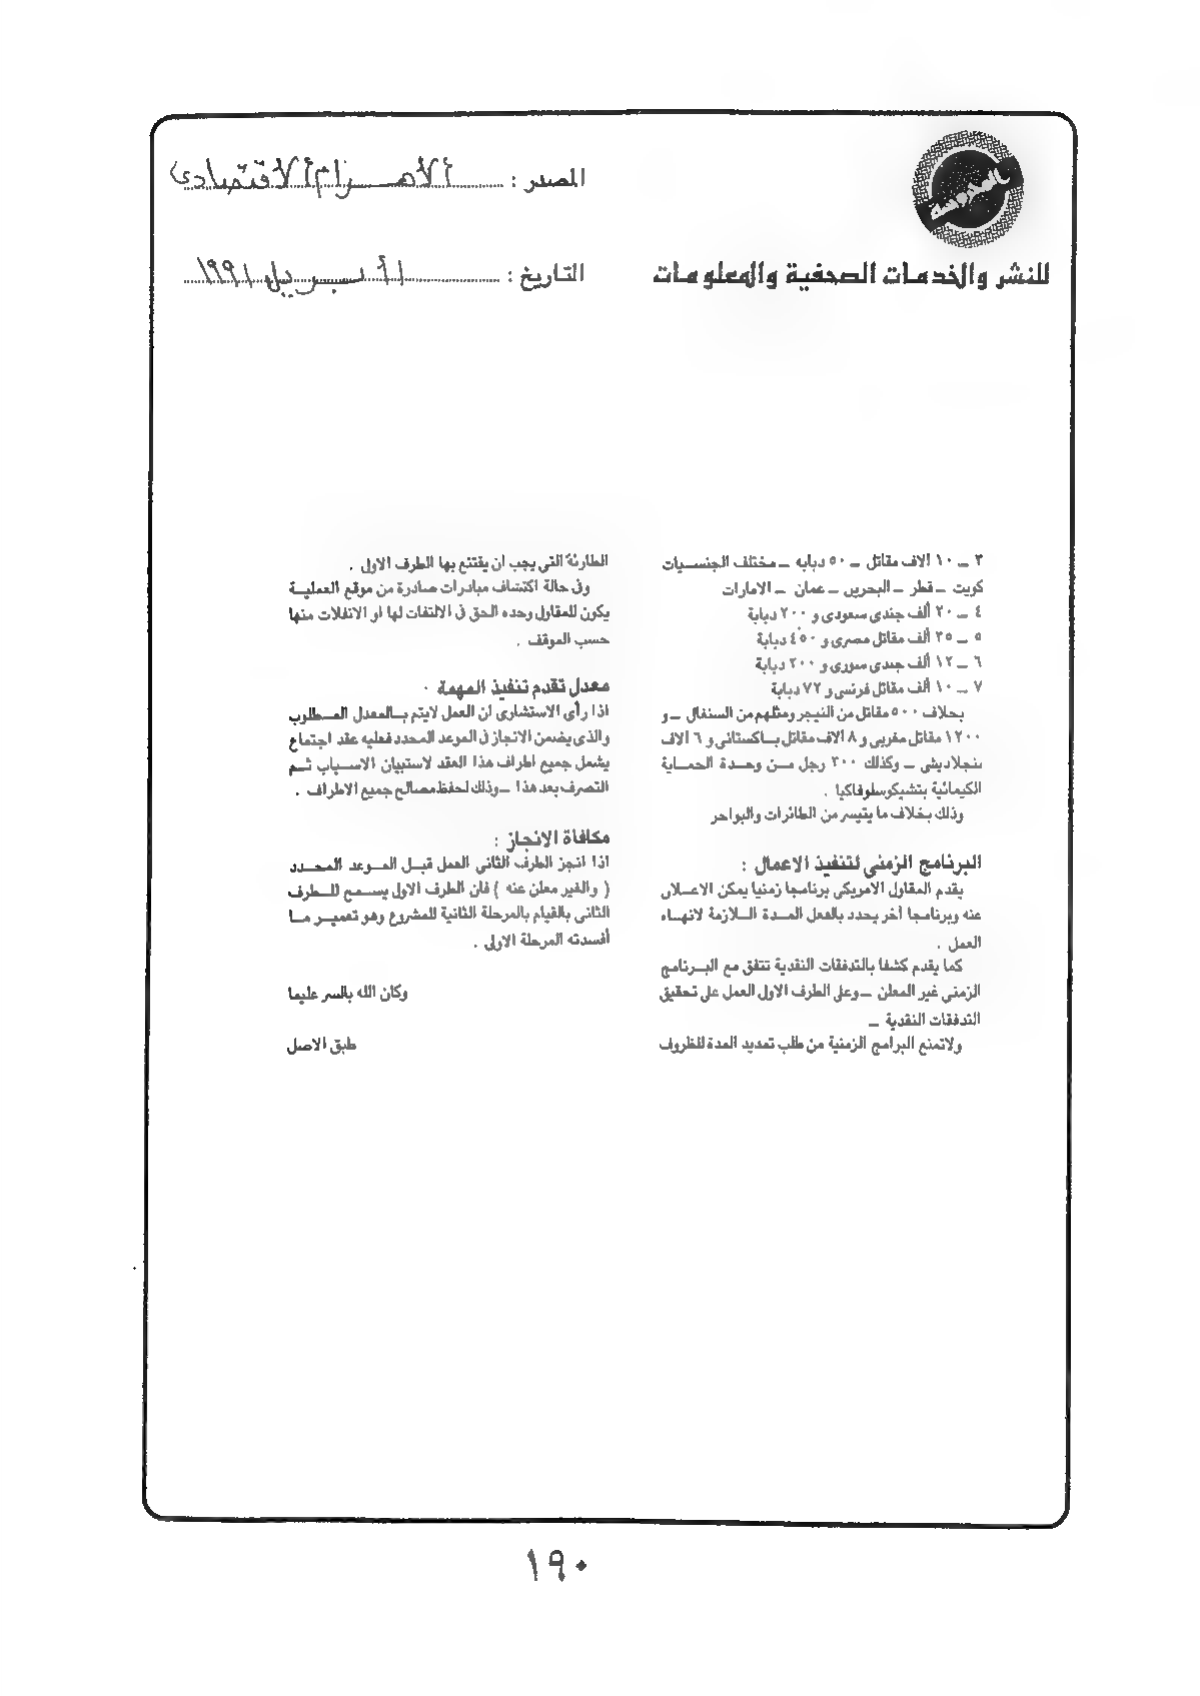 المحروسة
للنشر والخدمات الصحفية والمعلومات
المصدر : الأهـرام الاقتصادى
التاريخ : ١ أبـريل ١٩٩١
٣ ــ ١٠ الاف مقاتل ــ ٥٠ دبابه ــ مختلف الجنسـيات
كويت ــ قطر ــ البحرين ــ عمان ــ الامارات
٤ ــ ٢٠ ألف جندى سعودى و ٢٠٠ دبابة
٥ ــ ٣٥ ألف مقاتل مصرى و ٤٥٠ دبابة
٦ ــ ١٢ ألف جندى سورى و ٢٠٠ دبابة
٧ ــ ١٠ ألف مقاتل فرنسى و ٧٢ دبابة
بخلاف ٥٠٠ مقاتل من النيجر ومثلهم من السنغال ــ و
١٢٠٠ مقاتل مغربى و ٨ الاف مقاتل بـاكستانى و ٦ الاف
بنجلاديشى ــ وكذلك ٣٠٠ رجل مـن وحـدة الحمـاية
الكيمائية بتشيكوسلوفاكيا .
وذلك بخلاف ما يتيسر من الطائرات والبواخر
البرنامج الزمنى لتنفيذ الاعمال :
يقدم المقاول الامريكى برنامجا زمنيا يمكن الاعـلان
عنه وبرنامجا أخر يحدد بالفعل المـدة اللازمة لانهـاء
العمل .
كما يقدم كشفا بالتدفقات النقدية تتفق مع البـرنامج
الزمنى غير المعلن ــ وعلى الطرف الاول العمل على تحقيق
التدفقات النقدية ــ
ولاتمنع البرامج الزمنية من طلب تمديد المدة للظروف
الطارئة التى يجب ان يقتنع بها الطرف الاول .
وفى حالة اكتشاف مبادرات صادرة من موقع العمليـة
يكون للمقاول وحده الحق فى الالتفات لها او الانفلات منها
حسب الموقف .
معدل تقدم تنفيذ المهمة .
اذا رأى الاستشارى ان العمل لايتم بـالمعدل المـطلوب
والذى يضمن الانجاز فى الموعد المحدد فعليه عقد اجتماع
يشمل جميع اطراف هذا العقد لاستبيان الاسـباب ثـم
التصرف بعد هذا ــ وذلك لحفظ مصالح جميع الاطراف .
مكافأة الانجاز :
اذا انجز الطرف الثانى العمل قبـل المـوعد المحـدد
( والغير معلن عنه ) فان الطرف الاول يسـمح للـطرف
الثانى بالقيام بالمرحلة الثانية للمشروع وهو تعميـر مـا
أفسدته المرحلة الاولى .
وكان الله بالسر عليما
طبق الاصل
١٩٠